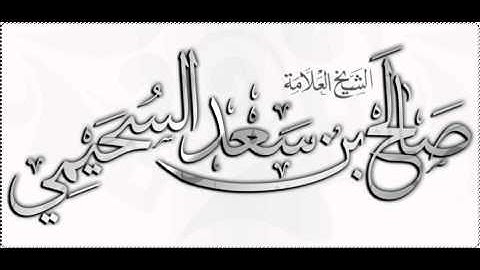 الشيخ العلامة
صالح بن سعد السحيمي